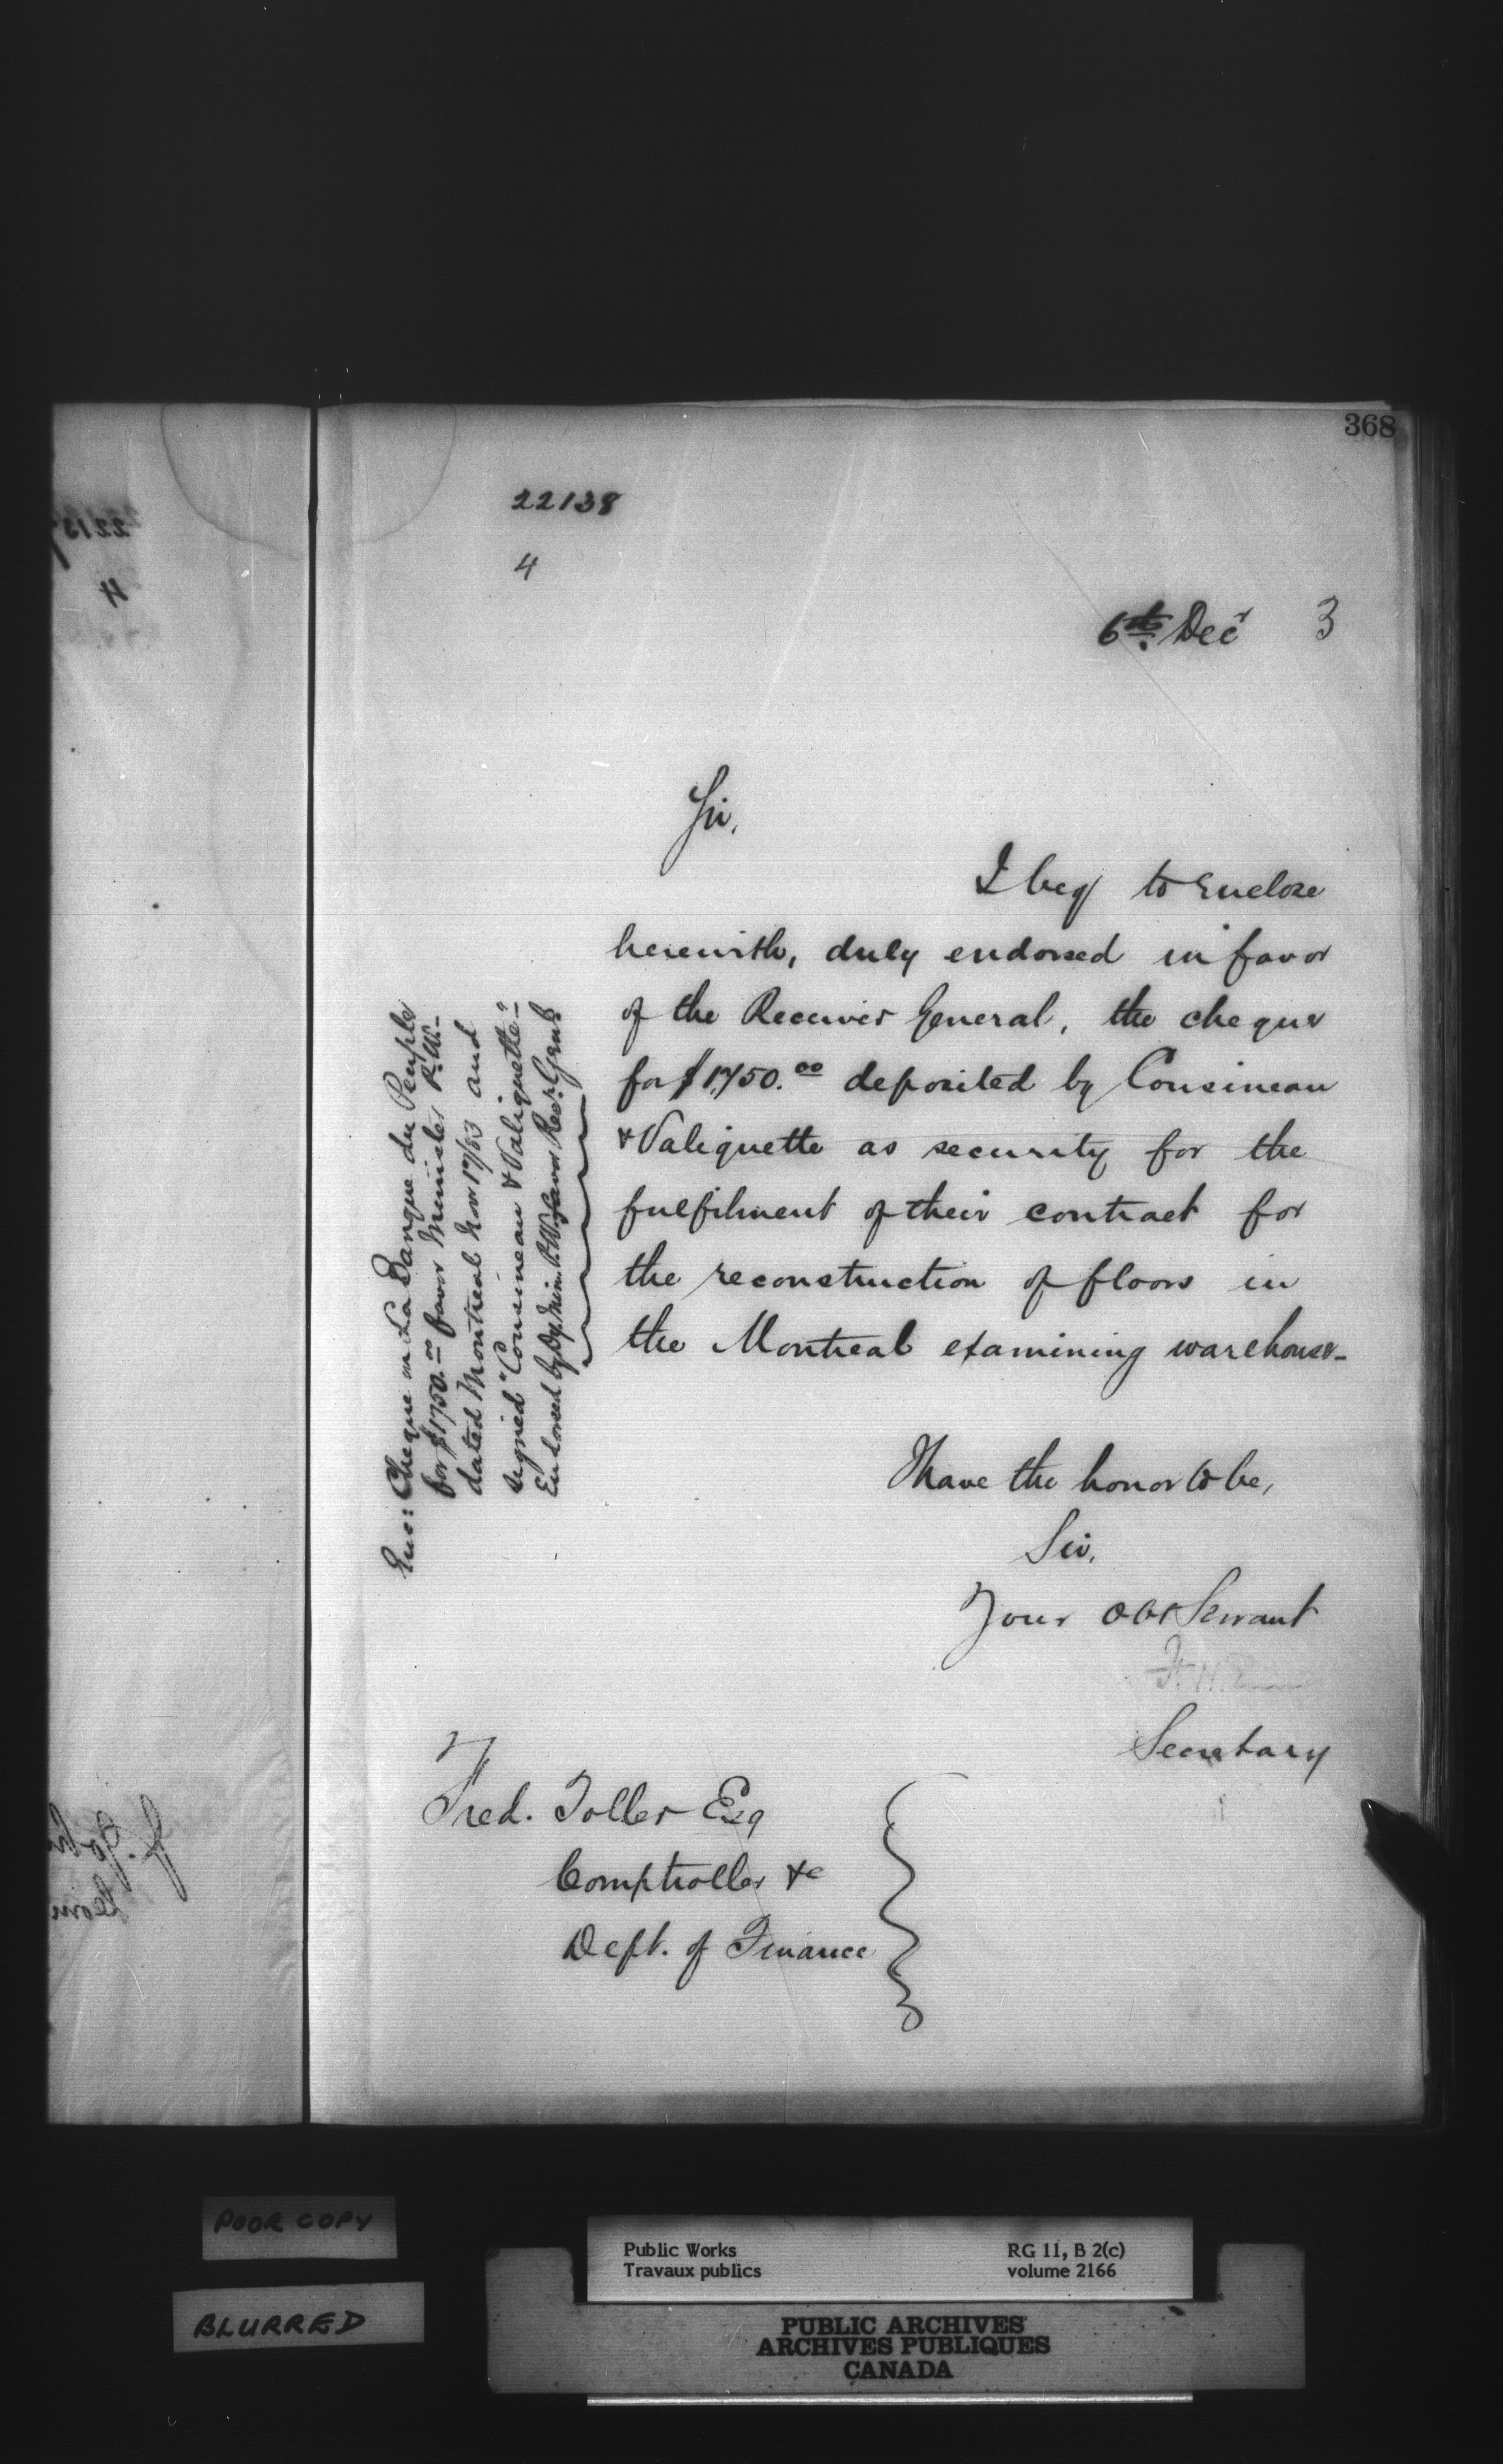 368
22138
4
6th. Decr 3
Sir,
I beg to enclose
herewith, duly endorsed in favor
of the Receiver General, the cheque
for $1750.00 deposited by Cousineau
& Valiquette as security for the
fulfilment of their contract for
the reconstruction of floors in
the Montreal examining warehouse-
I have the honor to be,
Sir,
Your Obt Servant
F. H.
Secretary
Fred. Toller Esq
Comptroller &c
Dept. of Finance
Enc: Cheque on La Banque du Peuple
for $1750.00 favor Minister P.W.-
dated Montreal Nov 17/83 and
signed "Cousineau & Valiquette"-
Endorsed by Dy. Min. P.W. favor Recr. Genl.
POOR COPY
BLURRED
Public Works
Travaux publics
RG 11, B 2(c)
volume 2166
PUBLIC ARCHIVES
ARCHIVES PUBLIQUES
CANADA